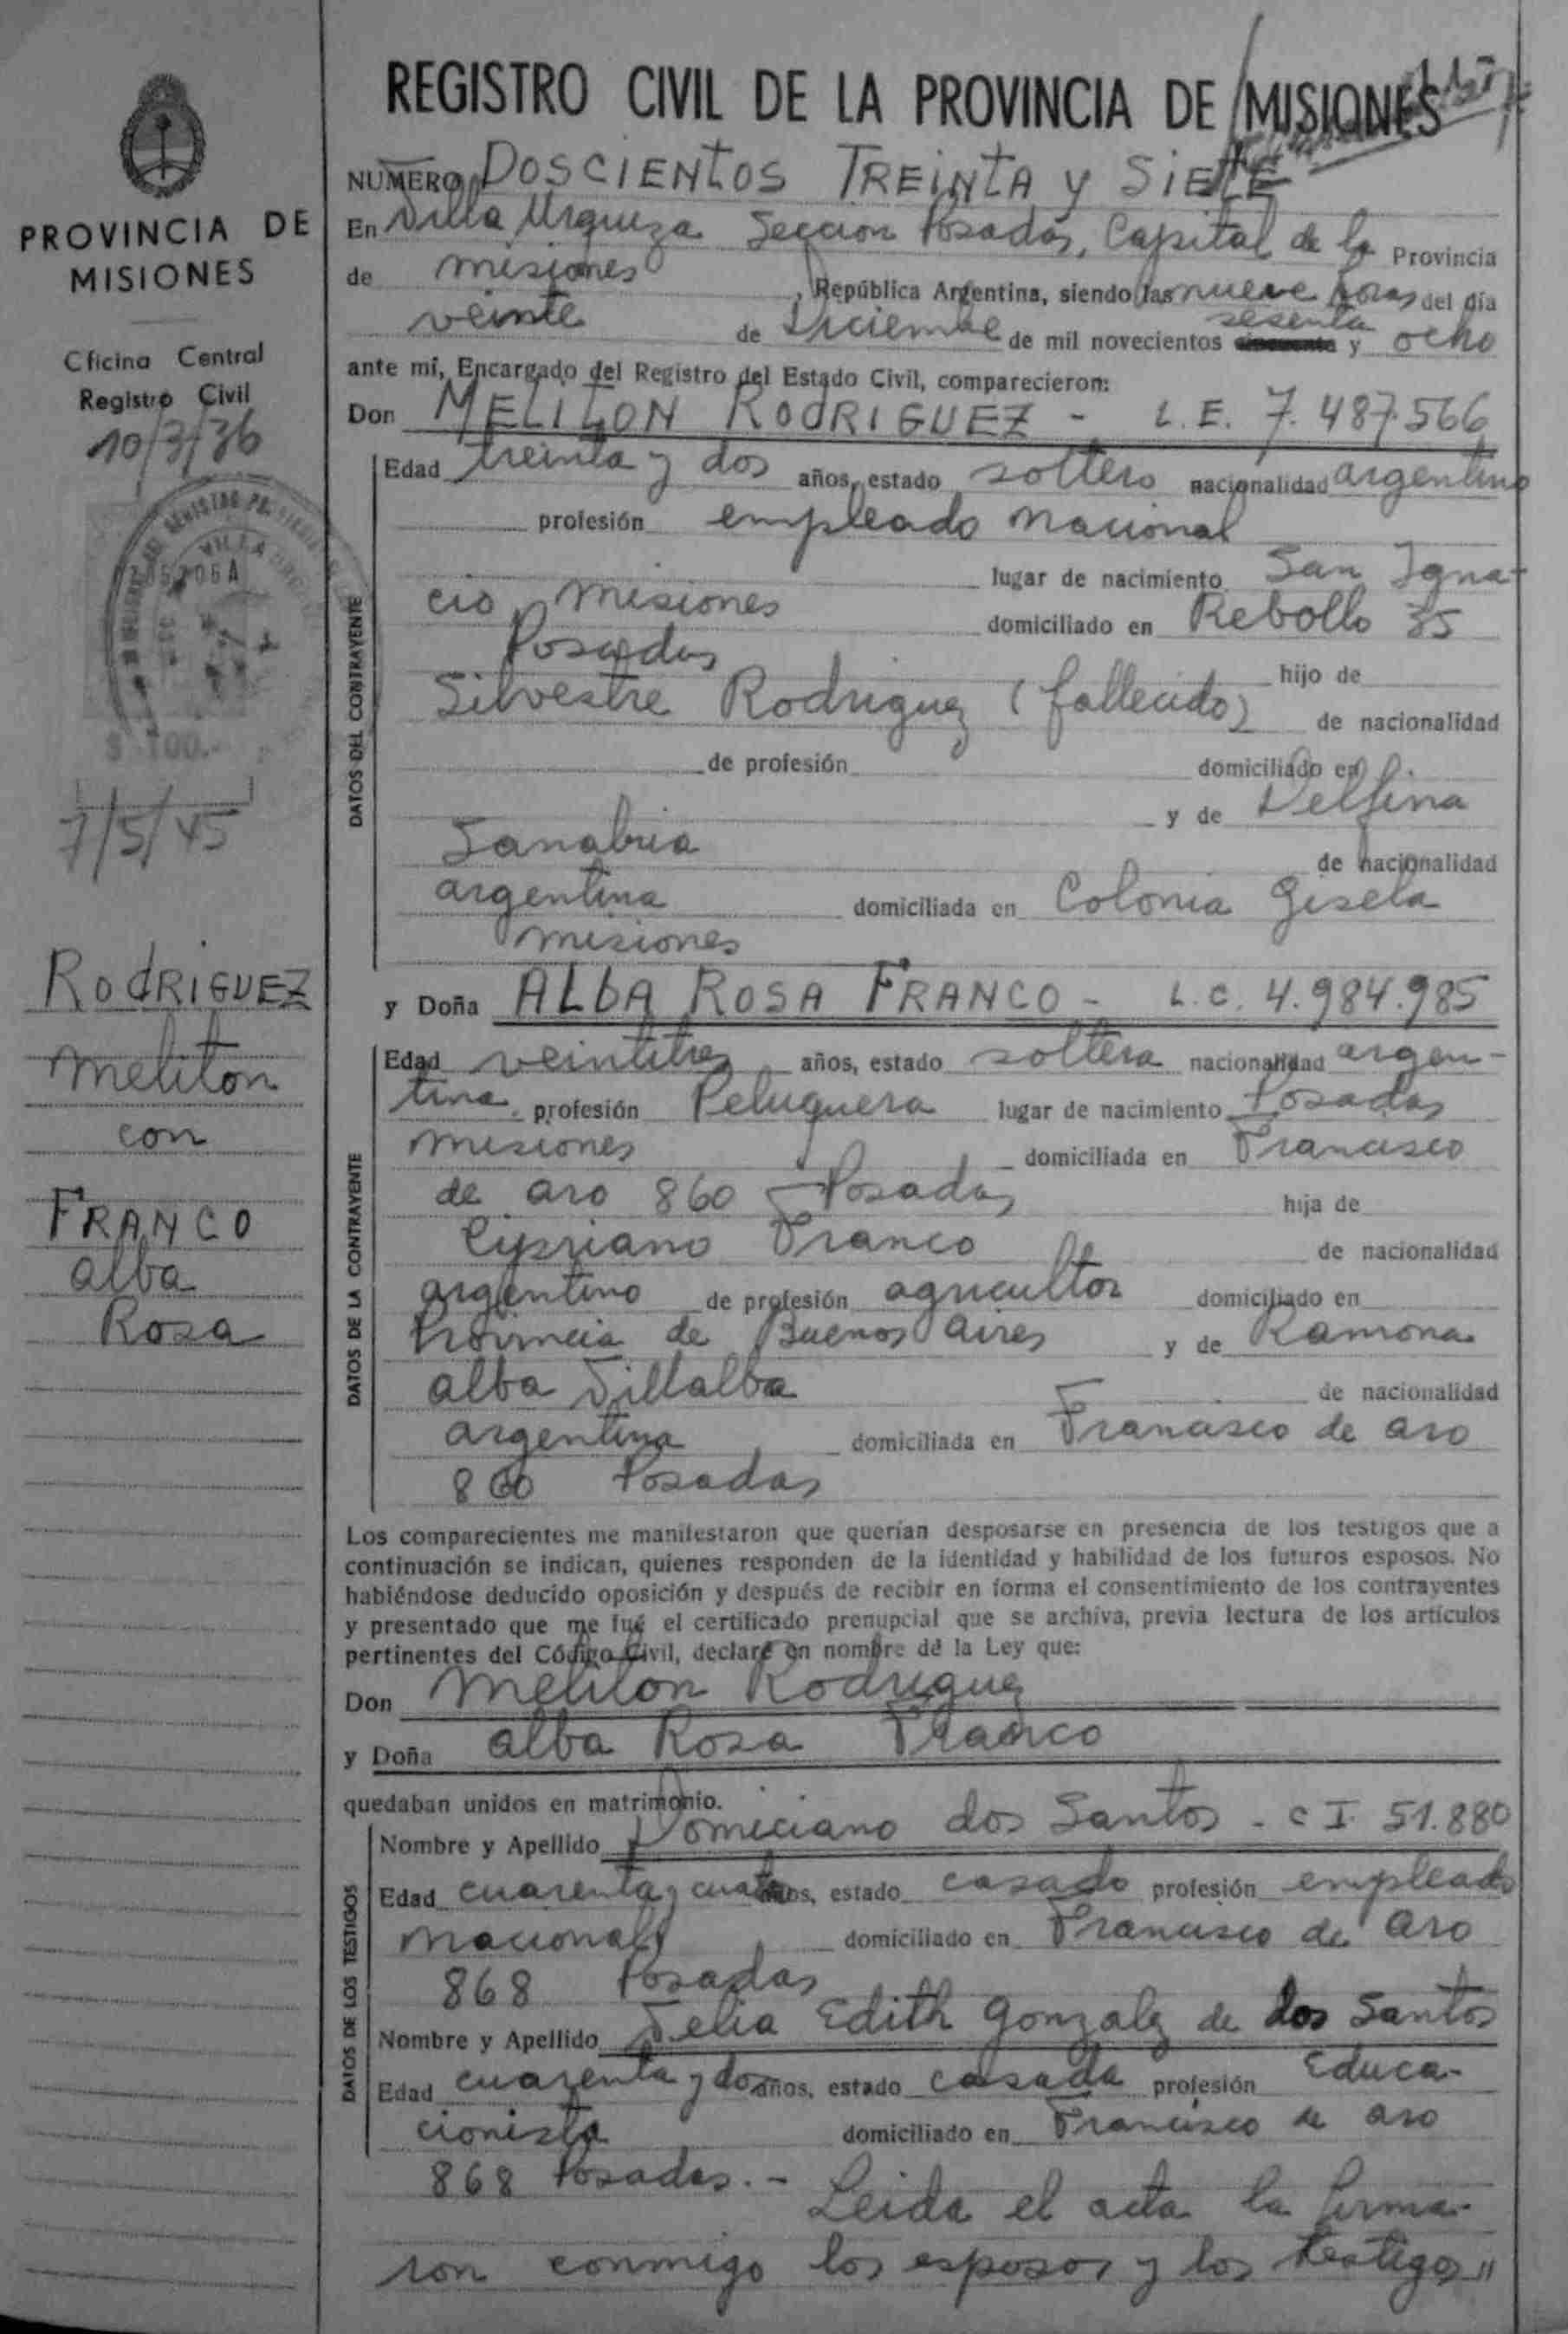 PROVINCIA DE
MISIONES
Oficina Central
Registro Civil
10/3/36
VILLA
$ 100.-
7/5/45
RODRIGUEZ
Meliton
con
FRANCO
Alba
Rosa
REGISTRO CIVIL DE LA PROVINCIA DE MISIONES
NUMERO DOSCIENTOS TREINTA Y SIETE
En Villa Urquiza Seccion Posadas, Capital de la Provincia
de Misiones, República Argentina, siendo las nueve horas del día
veinte de Diciembre de mil novecientos sesenta y ocho
ante mí, Encargado del Registro del Estado Civil, comparecieron:
Don MELITON RODRIGUEZ - L.E. 7.487.566
DATOS DEL CONTRAYENTE
Edad treinta y dos años, estado soltero nacionalidad argentino
profesión empleado nacional
lugar de nacimiento San Igna-
cio, Misiones domiciliado en Rebollo 35
Posadas hijo de
Silvestre Rodriguez (fallecido) de nacionalidad
de profesión domiciliado en
y de Delfina
Sanabria de nacionalidad
argentina domiciliada en Colonia Gisela
Misiones
y Doña ALBA ROSA FRANCO - L.C. 4.984.985
DATOS DE LA CONTRAYENTE
Edad veintitres años, estado soltera nacionalidad argen-
tina, profesión Peluquera lugar de nacimiento Posadas
Misiones domiciliada en Francisco
de aro 860 - Posadas hija de
Cipriano Franco de nacionalidad
argentino de profesión agricultor domiciliado en
Provincia de Buenos Aires y de Ramona
Alba Villalba de nacionalidad
argentina domiciliada en Francisco de aro
860 Posadas
Los comparecientes me manifestaron que querían desposarse en presencia de los testigos que a
continuación se indican, quienes responden de la identidad y habilidad de los futuros esposos. No
habiéndose deducido oposición y después de recibir en forma el consentimiento de los contrayentes
y presentado que me fué el certificado prenupcial que se archiva, previa lectura de los artículos
pertinentes del Código Civil, declaré en nombre de la Ley que:
Don Meliton Rodriguez
y Doña Alba Rosa Franco
quedaban unidos en matrimonio.
DATOS DE LOS TESTIGOS
Nombre y Apellido Domiciano dos Santos - C I. 51.880
Edad cuarenta y cuatro años, estado casado profesión empleado
nacional domiciliado en Francisco de aro
868 Posadas
Nombre y Apellido Edith Gonzalez de dos Santos
Edad cuarenta y dos años, estado casada profesión Educa-
cionista domiciliado en Francisco de aro
868 Posadas. - Leida el acta la firma-
ron conmigo los esposos y los testigos"